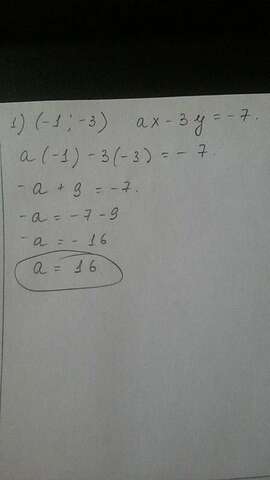 1) (-1 ; -3) ax - 3y = -7.
a (-1) - 3(-3) = - 7.
-a + 9 = -7.
-a = -7 - 9
-a = - 16
a = 16